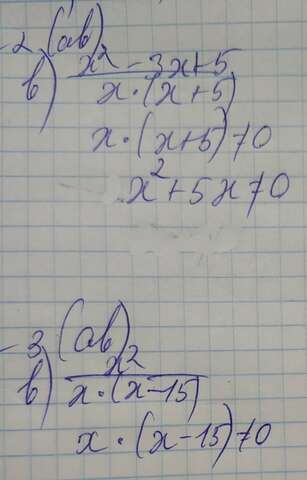 -2 (ab)
x² - 3x+5
в) x·(x+5)
x·(x+5)≠0
x²+5x≠0
-3 (ab)
x²
в) x·(x-15)
x·(x-15)≠0